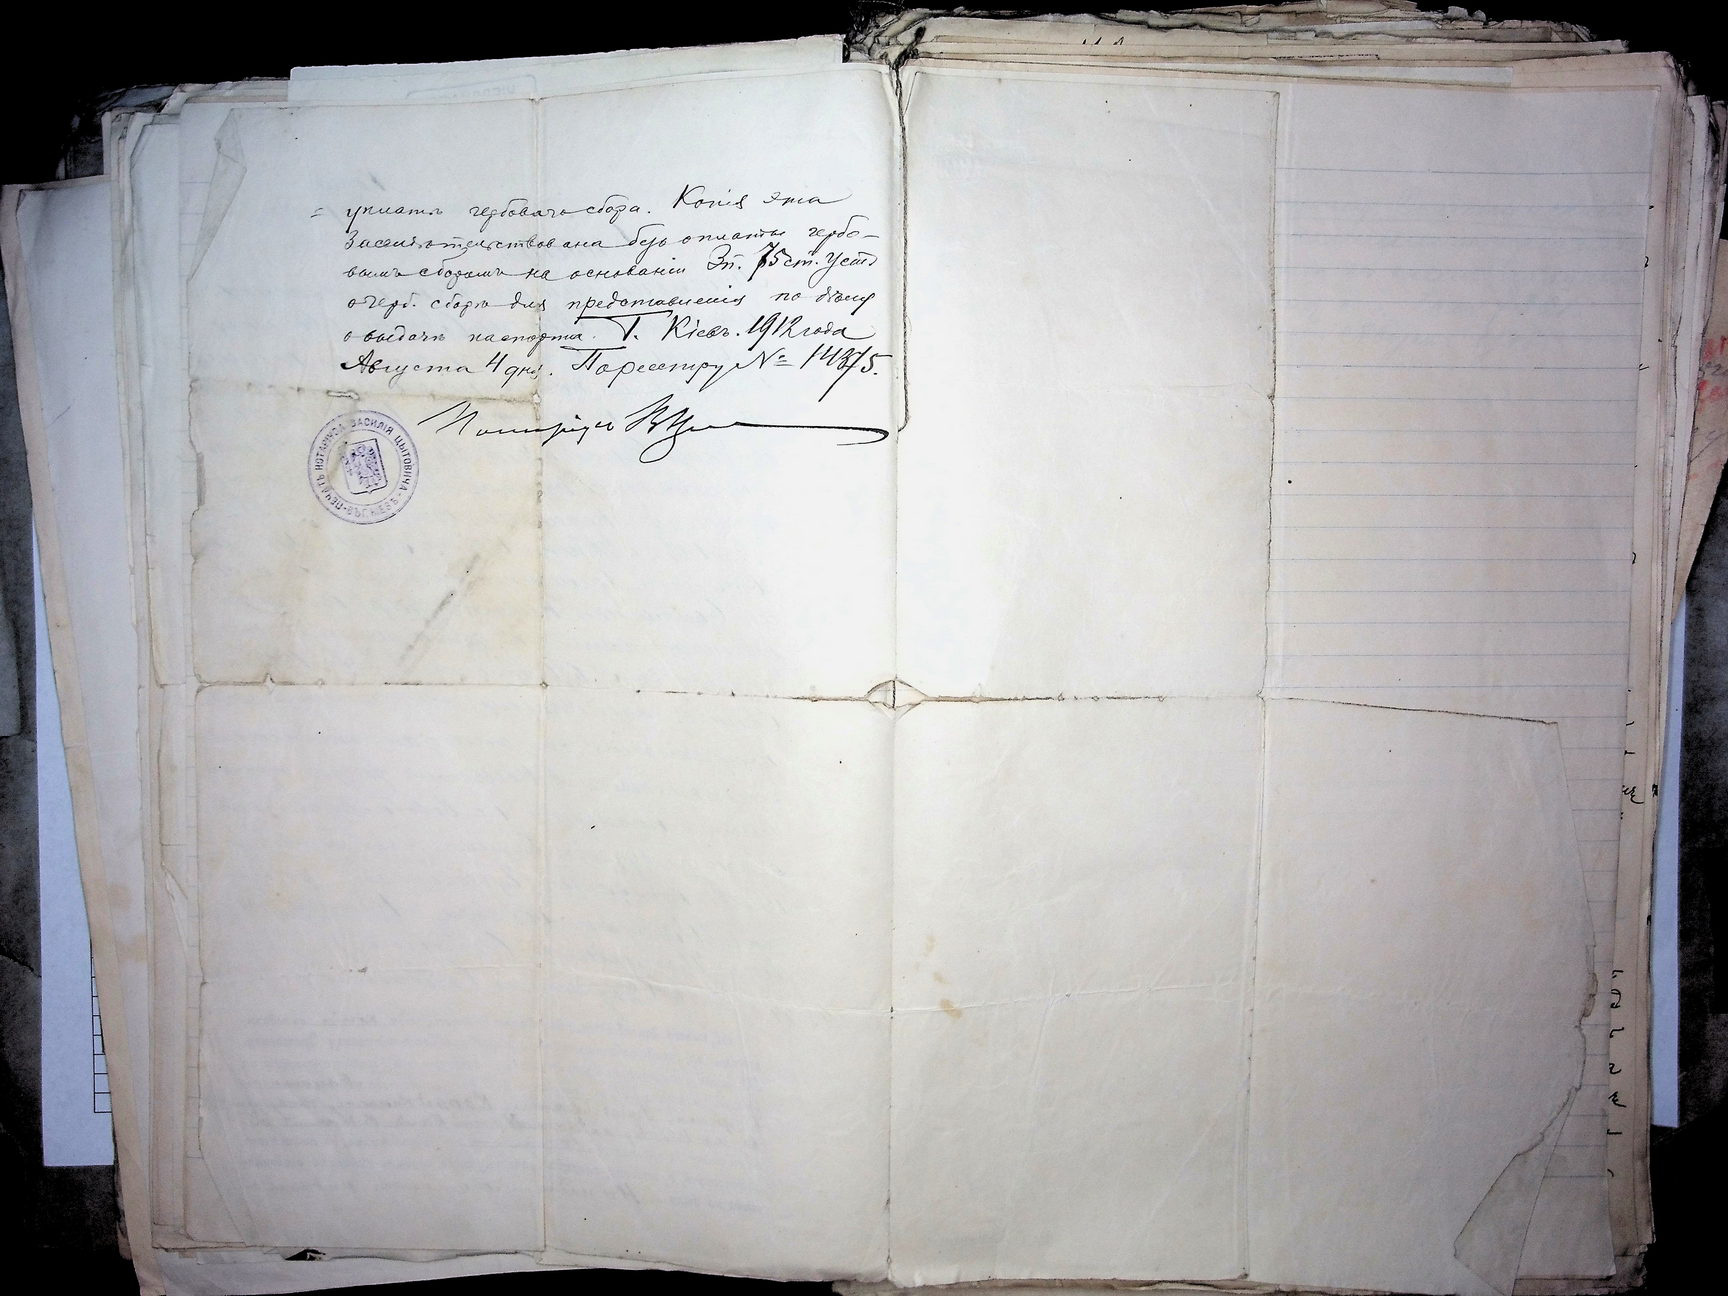 = уплатѣ гербоваго сбора. Копія эта
засвидѣтельствована безъ оплаты гербо-
вымъ сборомъ на основаніи 3 п. 75 ст. Уст.
о герб. сборѣ для представленія по дѣлу
о выдачѣ паспорта. Г. Кіевъ. 1912 года
Августа 4 дня. По реестру № 14375.
Нотаріусъ
ПЕЧАТЬ НОТАРІУСА ВАСИЛІЯ ЦЫТОВИЧА
ВЪ Г. КІЕВѢ